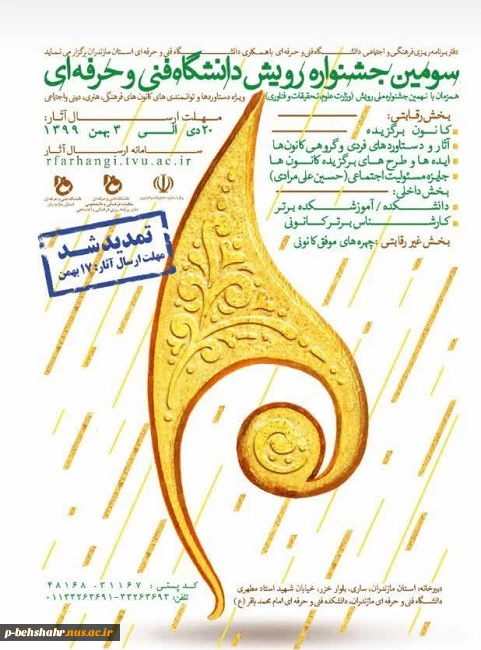 دفتر برنامه ریزی فرهنگی و اجتماعی دانشگاه فنی و حرفه ای با همکاری دانشگاه فنی و حرفه ای استان مازندران برگزار می نماید
سومین جشنواره رویش دانشگاه فنی و حرفه ای
همزمان با نهمین جشنواره ملی رویش (وزارت علوم، تحقیقات و فناوری) ویژه دستاوردها و توانمندی های کانون های فرهنگی، هنری، دینی واجتماعی
بخش رقابتی:
کانون برگزیده
آثار و دستاوردهای فردی و گروهی کانون‌ها
ایده ها و طرح های برگزیده کانون ها
جایزه مسئولیت اجتماعی (حسین علی مرادی)
بخش داخلی:
دانشکده / آموزشکده برتر
کارشناس برتر کانونی
بخش غیر رقابتی: چهره های موفق کانونی
مهلت ارسال آثار:
۲۰ دی الی ۳ بهمن ۱۳۹۹
سامانه ارسال آثار
rfarhangi.tvu.ac.ir
تمدید شد
مهلت ارسال آثار: ۱۷ بهمن
دبیرخانه: استان مازندران، ساری، بلوار خزر، خیابان شهید استاد مطهری
دانشگاه فنی و حرفه ای مازندران، دانشکده فنی و حرفه ای امام محمد باقر (ع)
کدپستی: ۳۱۱۶۷-۴۸۱۶۸
تلفن: ۳۳۲۶۳۶۹۳-۰۱۱۳۳۲۶۳۶۹۱
p-behshahr.nus.ac.ir